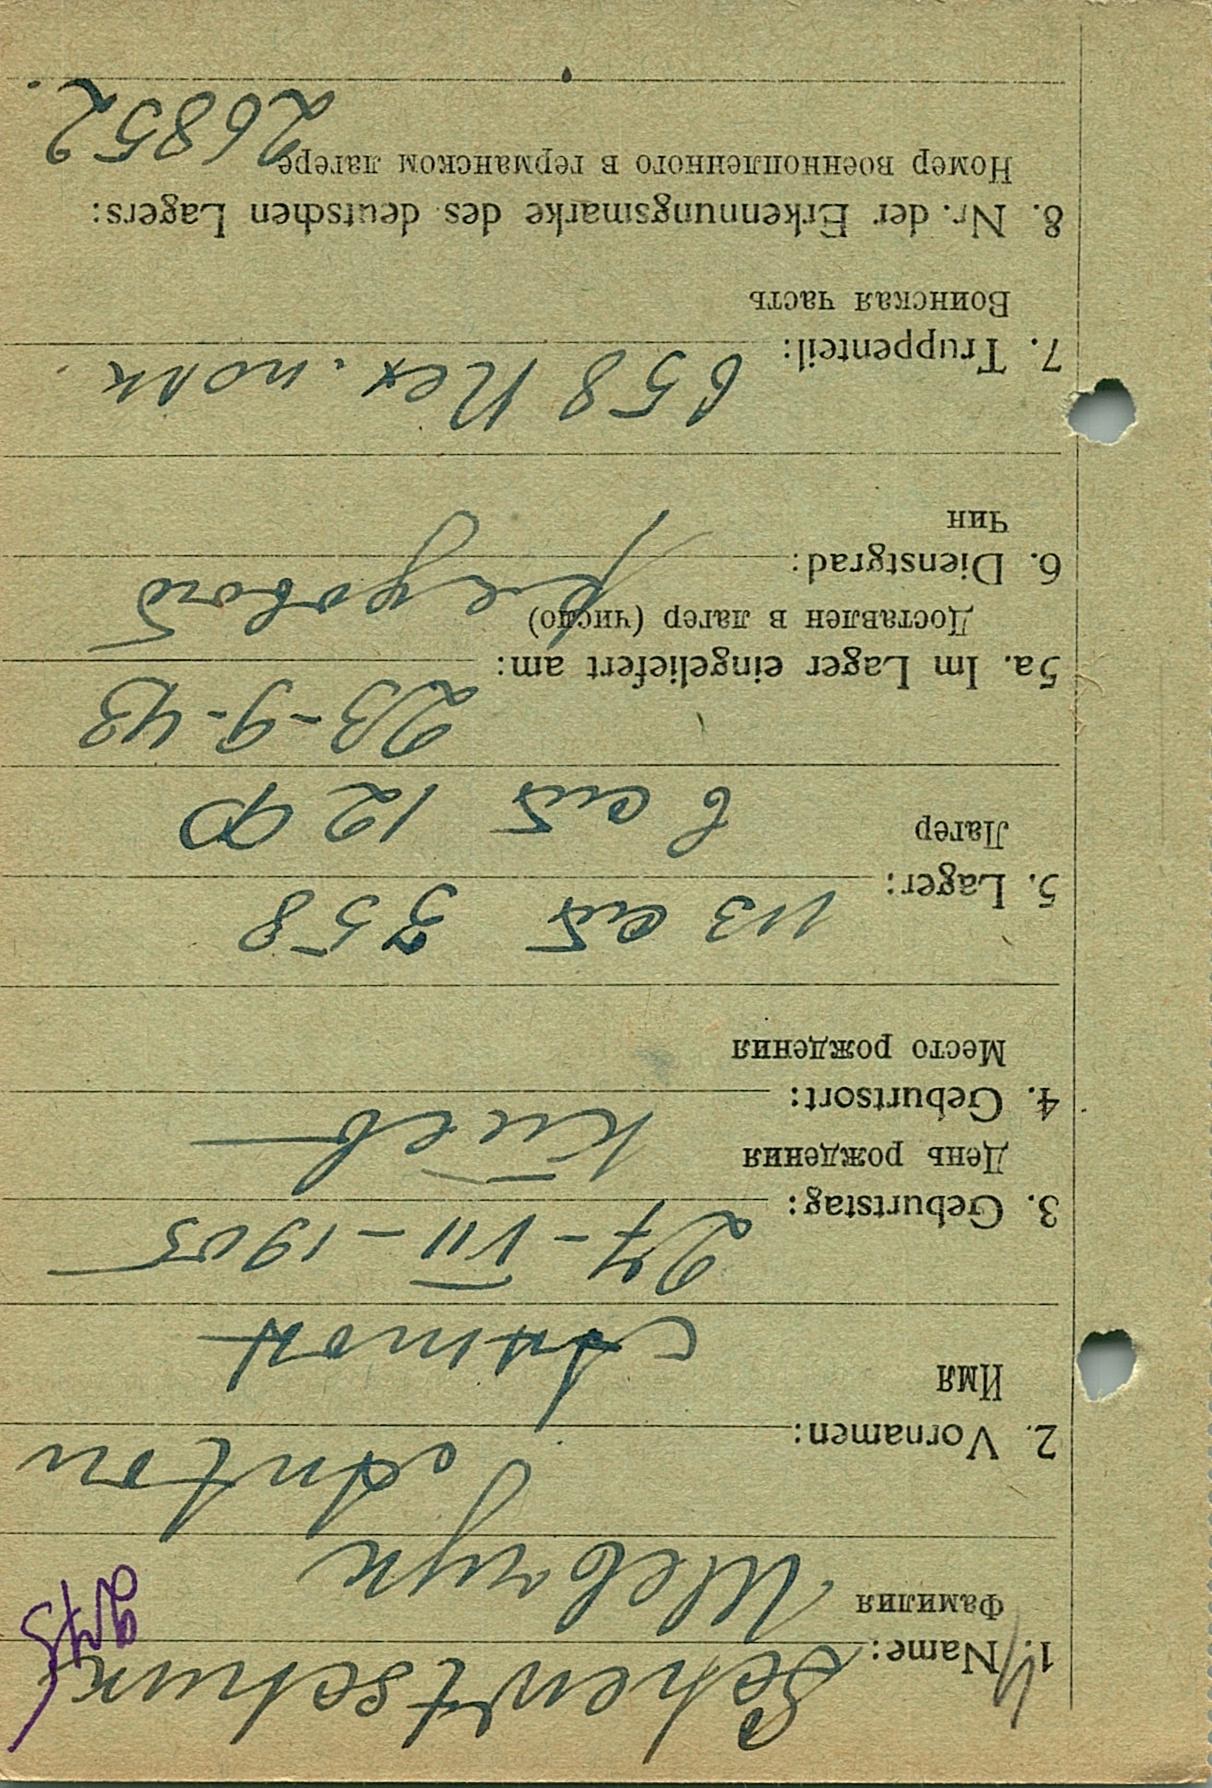 1. Name: Schewtschuk
Фамилия Шевчук
2. Vornamen: Anton
Имя Антон
3. Geburtstag: 27-VII-1905
День рождения
4. Geburtsort: Киев
Место рождения
5. Lager: из 358
Лагер в 12 Ф
5a. Im Lager eingeliefert am: 23-9-43
Доставлен в лагер (число)
6. Dienstgrad: рядовой
Чин
7. Truppenteil: 658 Пех. полк.
Воинская часть
8. Nr. der Erkennungsmarke des deutschen Lagers:
Номер военнопленного в германском лагере 26852.